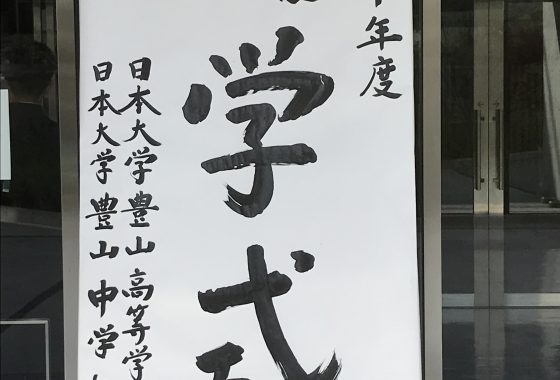 年度
学式
日本大学豊山高等学
日本大学豊山中学